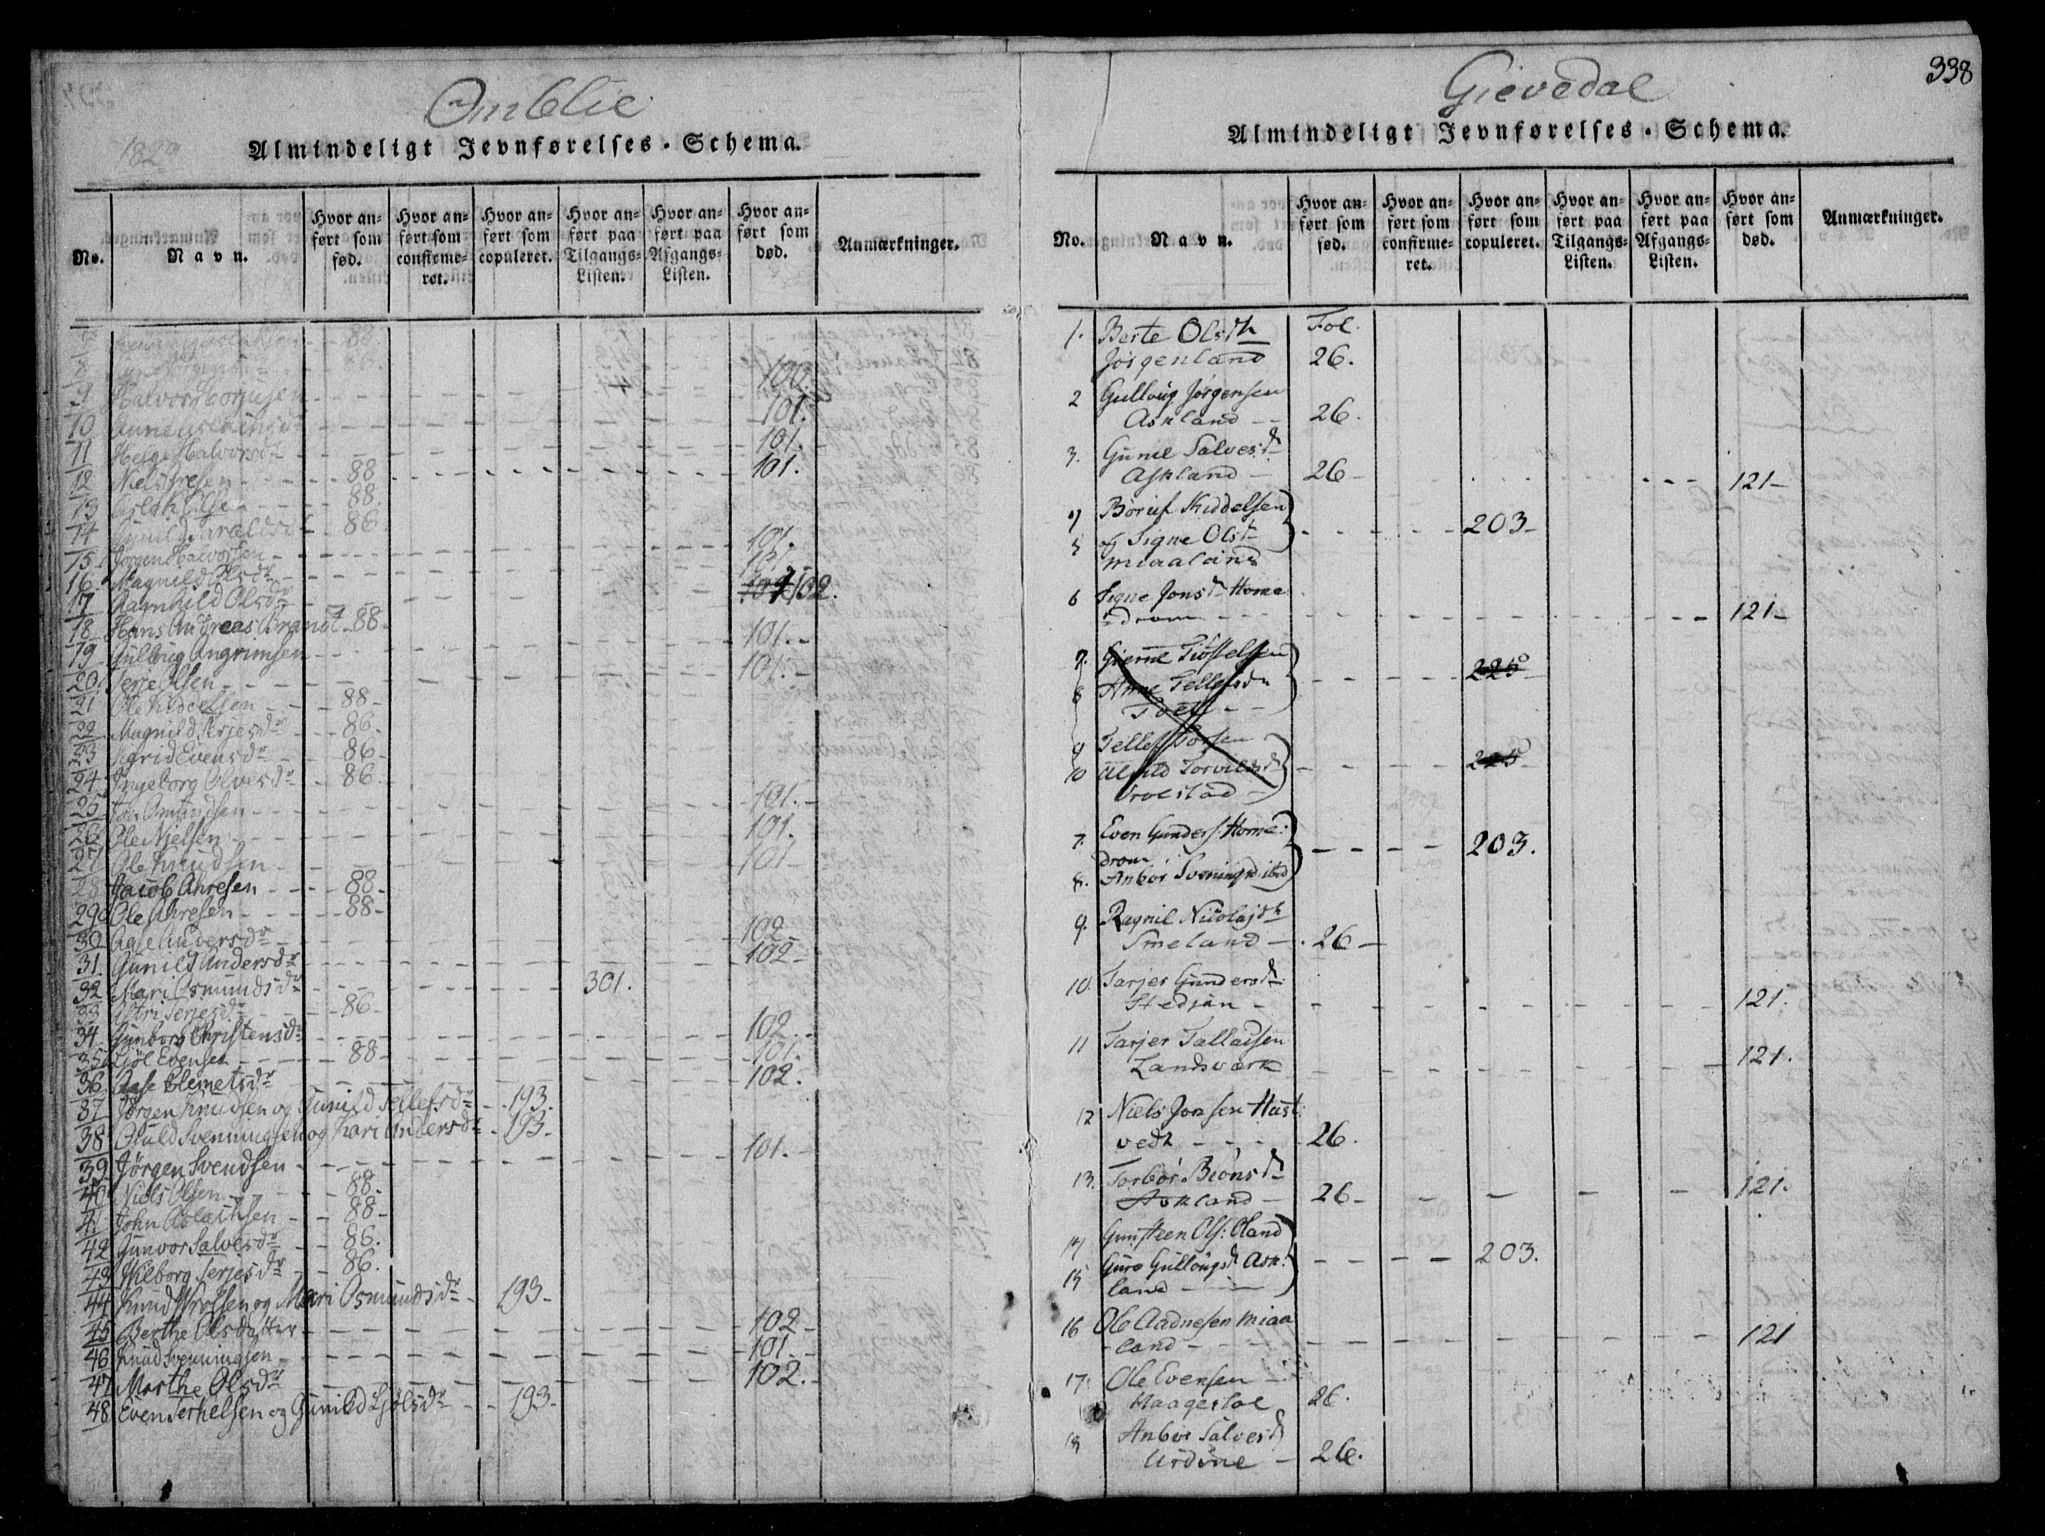 Omblie
1829
Almindeligt Jevnførelses-Schema.
No. Navn. Hvor anført som fød. Hvor anført som confirmeret. Hvor anført som copuleret. Hvor anført paa Tilgangs-Listen. Hvor anført paa Afgangs-Listen. Hvor anført som død. Anmærkninger.
88.
86.
9 Halvor 100.
10 101.
11 Helge Halvorsdr 101.
12 Niels 88 101.
13 88.
14 Gunild 86
15 Jørgen Halvorsen 101.
16 Magnild Olsdr 101.
17 Ragnhild Olsdr 102.
18 Hans Andreas Brandt 88
19 Gulbrig Angrimsen 101.
20 Terje Olsen 101.
21 Ole Kiddelsen 88
22 Magnild Terjesdr 86.
23 Sigrid Evensdr 86
24 Ingeborg Olvesdr 86.
25 Osmundsen 101.
26 Ole Nielsen 101.
27 Ole Knudsen 101
28 Jacob Ahresen 88.
29 Ole Ahresen 88
30 Aase Andersdr 102
31 Gunild Andersdr 102
32 Mari Osmundsdr 301.
33 Astri Terjesdr 86
34 Gunborg Christensdr 102.
35 Liøl Evensen 88 101.
36 Aase Clemetsdr 102.
37 Jørgen Knudsen og Gunild Tellefsdr 193.
38 Oluld Svenningsen og Kari Andersdr 193
39 Jörgen Svendsen 101.
40 Niels Olsen 88.
41 John Aslachsen 88
42 Gunvor Salvesdr 86.
43 Hilborg Terjesdr 86.
44 Knud og Mari Osmundsdr 193
45 Berthe Olsdatter 102
46 Knud Svenningsen 101
47 Marthe Olsdr 102.
48 Even Terkelsen og Gunild Liølsdr 193
338
Gievedal
Almindeligt Jevnførelses-Schema.
No. Navn. Hvor anført som fød. Hvor anført som confirmeret. Hvor anført som copuleret. Hvor anført paa Tilgangs-Listen. Hvor anført paa Afgangs-Listen. Hvor anført som død. Anmærkninger.
1. Berte Olsdtr Fol.
Jörgenland 26.
2 Gullvig Jørgensen
Askland 26.
3. Gunil Salvesdr
Askland 26 121
4 Børuf Kiddelsen 203
5 og Signe Olsdr
Miaaland
6 Signe Jonsdr Home
drom 121
7. Gierne Tiøstelsen 225
8 Anne Tellefsdr
Tveit
9 Tellef
10 Torvildsdr 225
Wrolstad
7. Even Gunders: Home:
drom 203.
8. Anbor Sveningsd ibid
9. Ragnil Nicolajdr
Smeland 26
10. Tarjer Gundersdr
Stedjan 121.
11 Tarjer Tallaksen
Landsværk 121.
12 Niels Jonsen Hast:
vedt 26.
13. Torbor Biönsdr
Askland 26 121.
14 Gunsteen Ols: Oland 203.
15 Guro Gullougsd Ask:
land
16 Ole Aadnesen Miaa
land 121
17. Ole Evensen
Haagestol 26.
18 Anbor Salvesd
Urdøne 26.